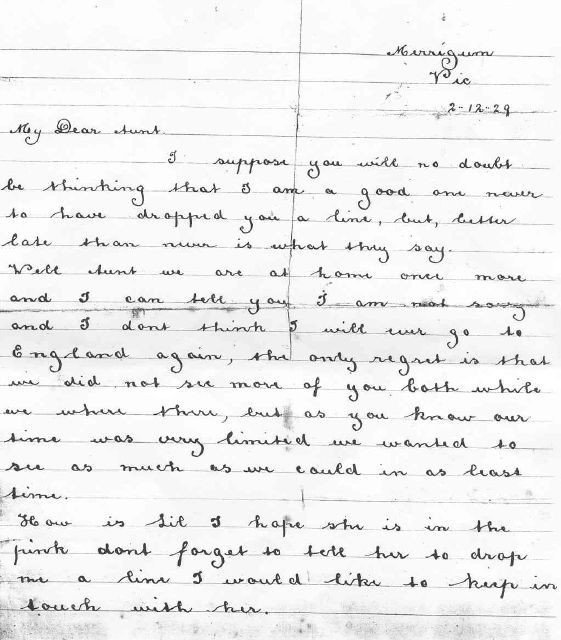 Merrigum
Vic
2-12-29
My Dear Aunt
I suppose you will no doubt
be thinking that I am a good one never
to have dropped you a line, but, better
late than never is what they say.
Well Aunt we are at home once more
and I can tell you I am not sorry
and I dont think I will ever go to
England again, the only regret is that
we did not see more of you both while
we where there, but as you know our
time was very limited we wanted to
see as much as we could in as least
time.
How is Lil I hope she is in the
pink dont forget to tell her to drop
me a line I would like to keep in
touch with her.